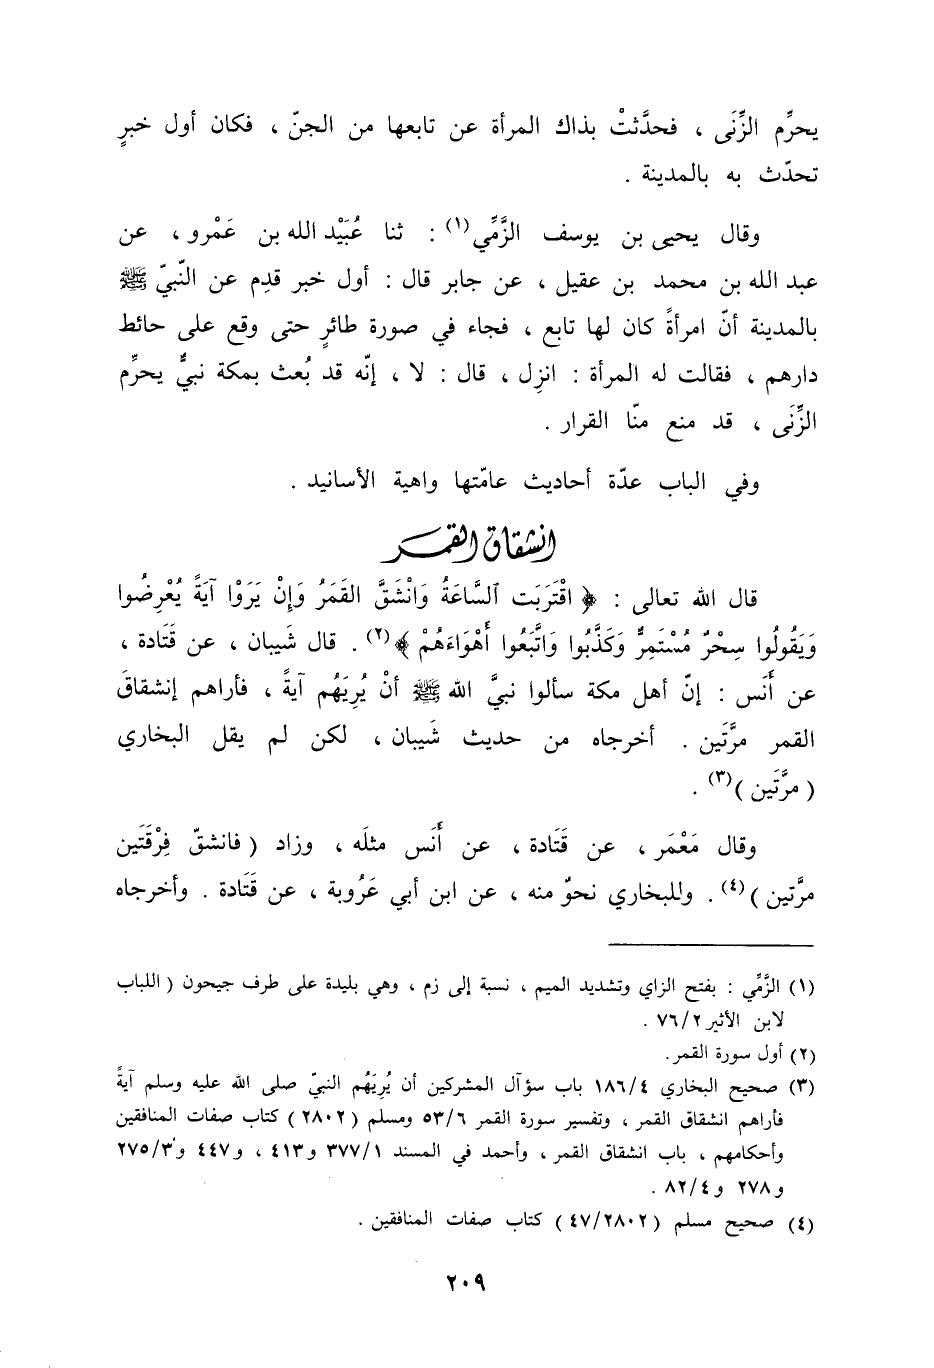 يحرِّم الزِّنَى ، فحدَّثتْ بذاك المرأة عن تابعها من الجنّ ، فكان أول خبرٍ
تحدّث به بالمدينة .
وقال يحيى بن يوسف الزَّمِّي(١) : ثنا عُبَيْد الله بن عَمْرو ، عن
عبد الله بن محمد بن عقيل ، عن جابر قال : أول خبر قدِم عن النّبيّ ﷺ
بالمدينة أنّ امرأةً كان لها تابع ، فجاء في صورة طائرٍ حتى وقع على حائط
دارهم ، فقالت له المرأة : انزِل ، قال : لا ، إنّه قد بُعث بمكة نبيٌّ يحرِّم
الزِّنَى ، قد منع منّا القرار .
وفي الباب عدّة أحاديث عامّتها واهية الأسانيد .
انشقاق القمر
قال الله تعالى : ﴿ اقْتَرَبَت ٱلسَّاعَةُ وَانْشَقَّ القَمَرُ وَإِنْ يَرَوْا آيَةً يُعْرِضُوا
وَيَقُولُوا سِحْرٌ مُسْتَمِرٌّ وَكَذَّبُوا وَاتَّبَعُوا أَهْوَاءَهُمْ ﴾(٢) . قال شَيبان ، عن قَتَادة ،
عن أَنَس : إنّ أهل مكة سألوا نبيَّ الله ﷺ أنْ يُرِيَهُم آيةً ، فأراهم إنشقاقَ
القمر مرَّتَين . أخرجاه من حديث شَيبان ، لكن لم يقل البخاري
( مرَّتَين )(٣) .
وقال مَعْمَر ، عن قَتَادة ، عن أَنَس مثلَه ، وزاد ( فانشقّ فِرْقَتَين
مرَّتين )(٤) . وللبخاري نحوٌ منه ، عن ابن أبي عَرُوبة ، عن قَتَادة . وأخرجاه
(١) الزَّمِّي : بفتح الزاي وتشديد الميم ، نسبة إلى زم ، وهي بليدة على طرف جيحون ( اللباب
لابن الأثير ٧٦/٢ .
(٢) أول سورة القمر.
(٣) صحيح البخاري ١٨٦/٤ باب سؤآل المشركين أن يُرِيَهُم النبيّ صلى الله عليه وسلم آيةً
فأراهم انشقاق القمر ، وتفسير سورة القمر ٥٣/٦ ومسلم ( ٢٨٠٢ ) كتاب صفات المنافقين
وأحكامهم ، باب انشقاق القمر ، وأحمد في المسند ٣٧٧/١ و٤١٣ ، و٤٤٧ و٢٧٥/٣
و٢٧٨ و٨٢/٤ .
(٤) صحيح مسلم ( ٤٧/٢٨٠٢ ) كتاب صفات المنافقين .
٢٠٩